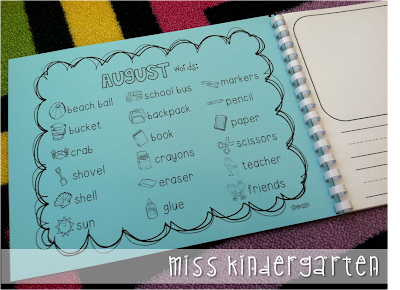 AUGUST words:
beach ball
bucket
crab
shovel
shell
sun
school bus
backpack
book
crayons
eraser
glue
markers
pencil
paper
scissors
teacher
friends
miss kindergarten